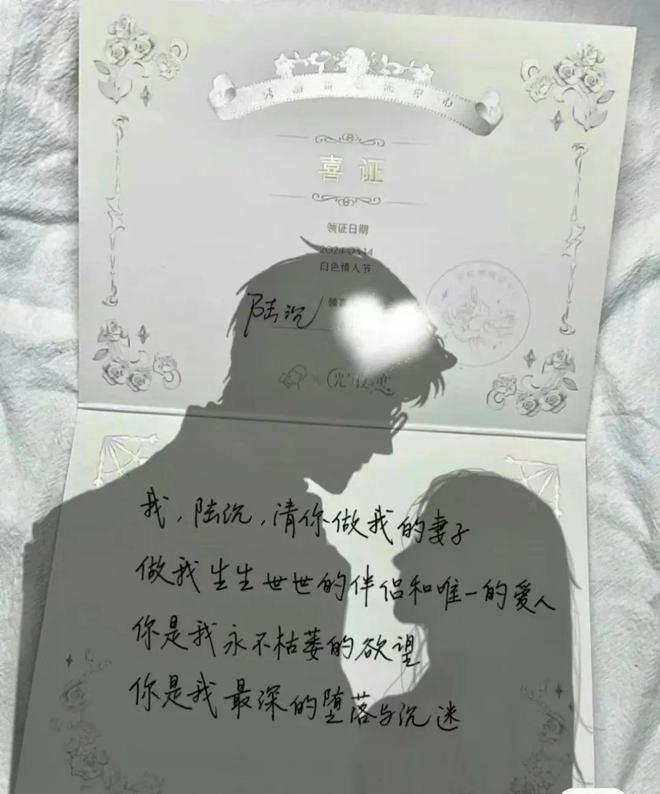 喜证
领证日期
白色情人节
陆沉
我,陆沉,请你做我的妻子
做我生生世世的伴侣和唯一的爱人
你是我永不枯萎的欲望
你是我最深的堕落与沉迷